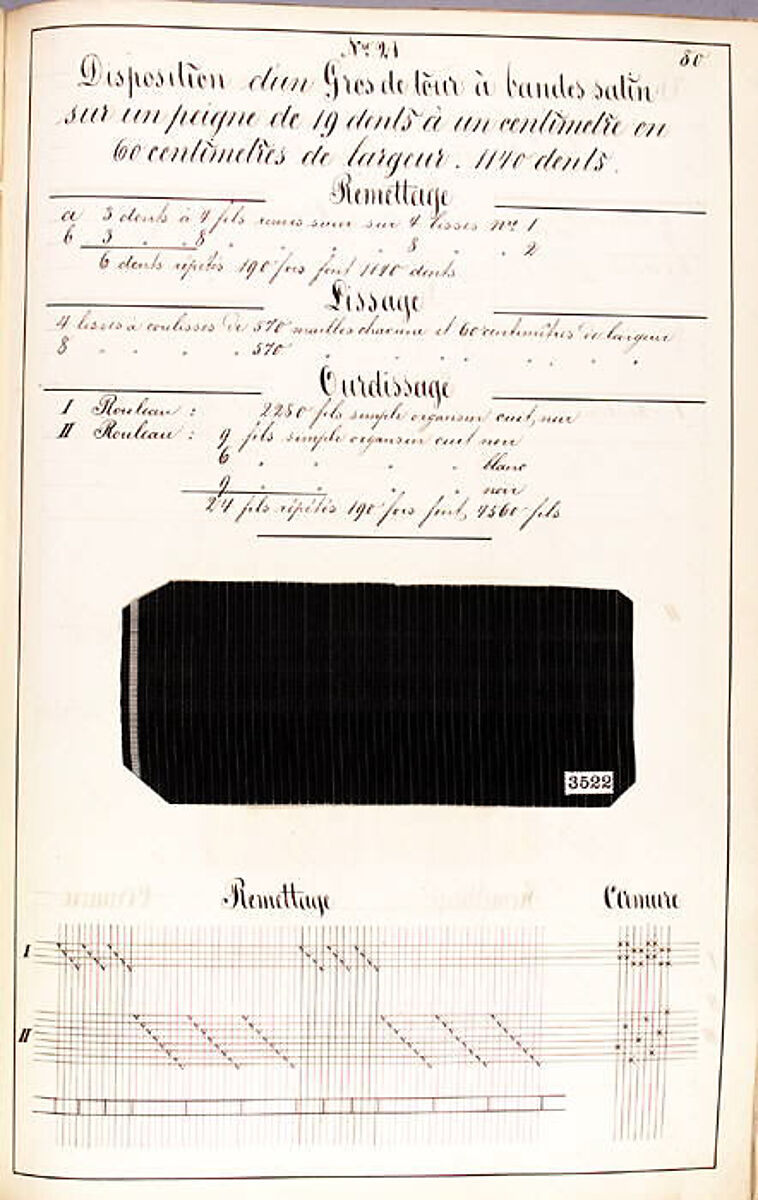 Nº 21
80
Disposition d'un Gros de tour à bandes satin
sur un peigne de 19 dents à un centimetre en
60 centimetres de largeur. 1140 dents.
Remettage
a 3 dents à 4 fils remis suivi sur 4 lisses nº 1
b 3 " " 8 " " " " 8 " " 2
6 dents répétés 190 fois font 1140 dents
Lissage
4 lisses à coulisses de 570 mailles chacune et 60 centimètres de largeur
8 " " " 570 " " " " " "
Ourdissage
I Rouleau : 2280 fils simple organsin cuit, noir
II Rouleau : 9 fils simple organsin cuit noir
6 " " " " blanc
9 " " " " noir
24 fils répétés 190 fois font, 4560 fils
3522
Remettage
Armure
I
II